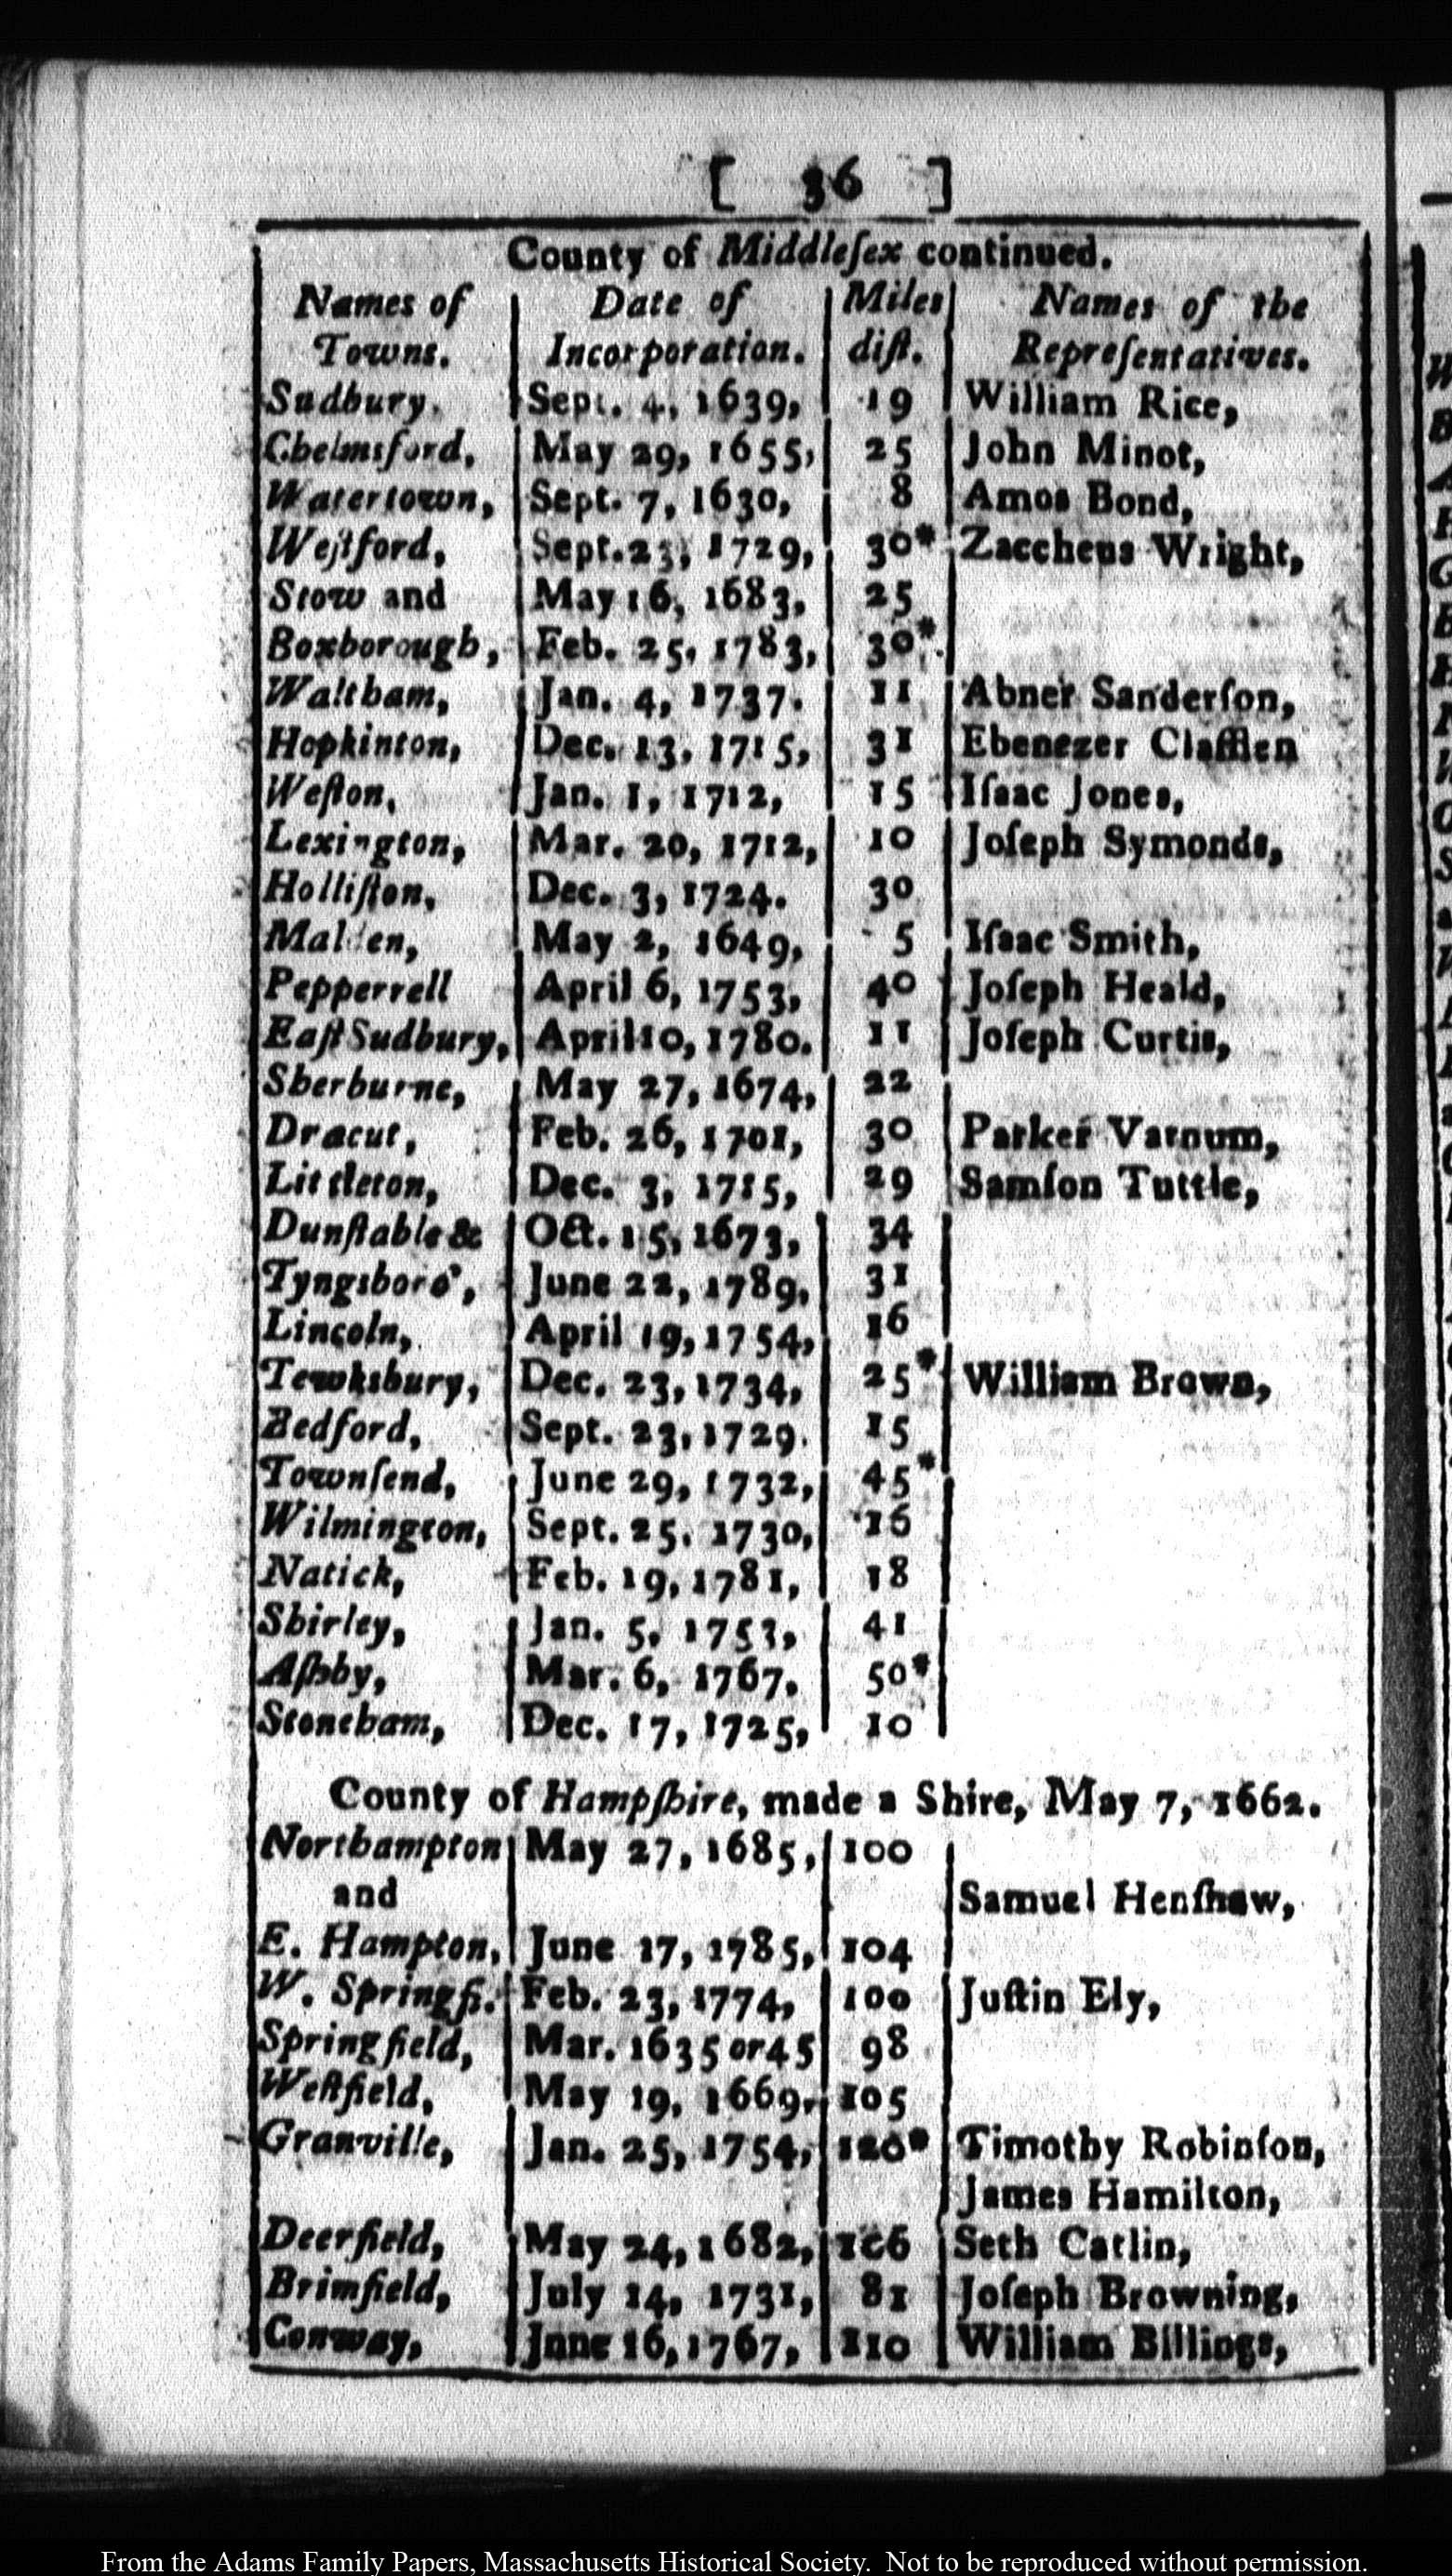 [ 36 ]
County of Middleſex continued.
Names of Towns. | Date of Incorporation. | Miles diſt. | Names of the Repreſentatives.
Sudbury, Sept. 4, 1639, 19 William Rice,
Chelmsford, May 29, 1655, 25 John Minot,
Watertown, Sept. 7, 1630, 8 Amos Bond,
Weſtford, Sept. 23, 1729, 30* Zaccheus Wright,
Stow and May 16, 1683, 25
Boxborough, Feb. 25, 1783, 30*
Waltham, Jan. 4, 1737. 11 Abner Sanderſon,
Hopkinton, Dec. 13, 1715, 31 Ebenezer Clafflen
Weſton, Jan. 1, 1712, 15 Iſaac Jones,
Lexington, Mar. 20, 1712, 10 Joſeph Symonds,
Holliſton, Dec. 3, 1724. 30
Malden, May 2, 1649, 5 Iſaac Smith,
Pepperrell April 6, 1753, 40 Joſeph Heald,
Eaſt Sudbury, April 10, 1780. 11 Joſeph Curtis,
Sherburne, May 27, 1674, 22
Dracut, Feb. 26, 1701, 30 Parker Varnum,
Littleton, Dec. 3, 1715, 29 Samſon Tuttle,
Dunſtable & Oct. 15, 1673, 34
Tyngsboro', June 22, 1789, 31
Lincoln, April 19, 1754, 16
Tewksbury, Dec. 23, 1734, 25* William Brown,
Bedford, Sept. 23, 1729. 15
Townſend, June 29, 1732, 45*
Wilmington, Sept. 25, 1730, 16
Natick, Feb. 19, 1781, 18
Shirley, Jan. 5, 1753, 41
Aſhby, Mar. 6, 1767, 50*
Stoneham, Dec. 17, 1725, 10
County of Hampſhire, made a Shire, May 7, 1662.
Northampton May 27, 1685, 100
and Samuel Henſhaw,
E. Hampton, June 17, 1785, 104
W. Springfi. Feb. 23, 1774, 100 Juſtin Ely,
Springfield, Mar. 1635 or 45 98
Weſtfield, May 19, 1669, 105
Granville, Jan. 25, 1754, 120* Timothy Robinſon,
James Hamilton,
Deerfield, May 24, 1682, 106 Seth Catlin,
Brimfield, July 14, 1731, 81 Joſeph Browning,
Conway, June 16, 1767, 110 William Billings,
From the Adams Family Papers, Massachusetts Historical Society. Not to be reproduced without permission.